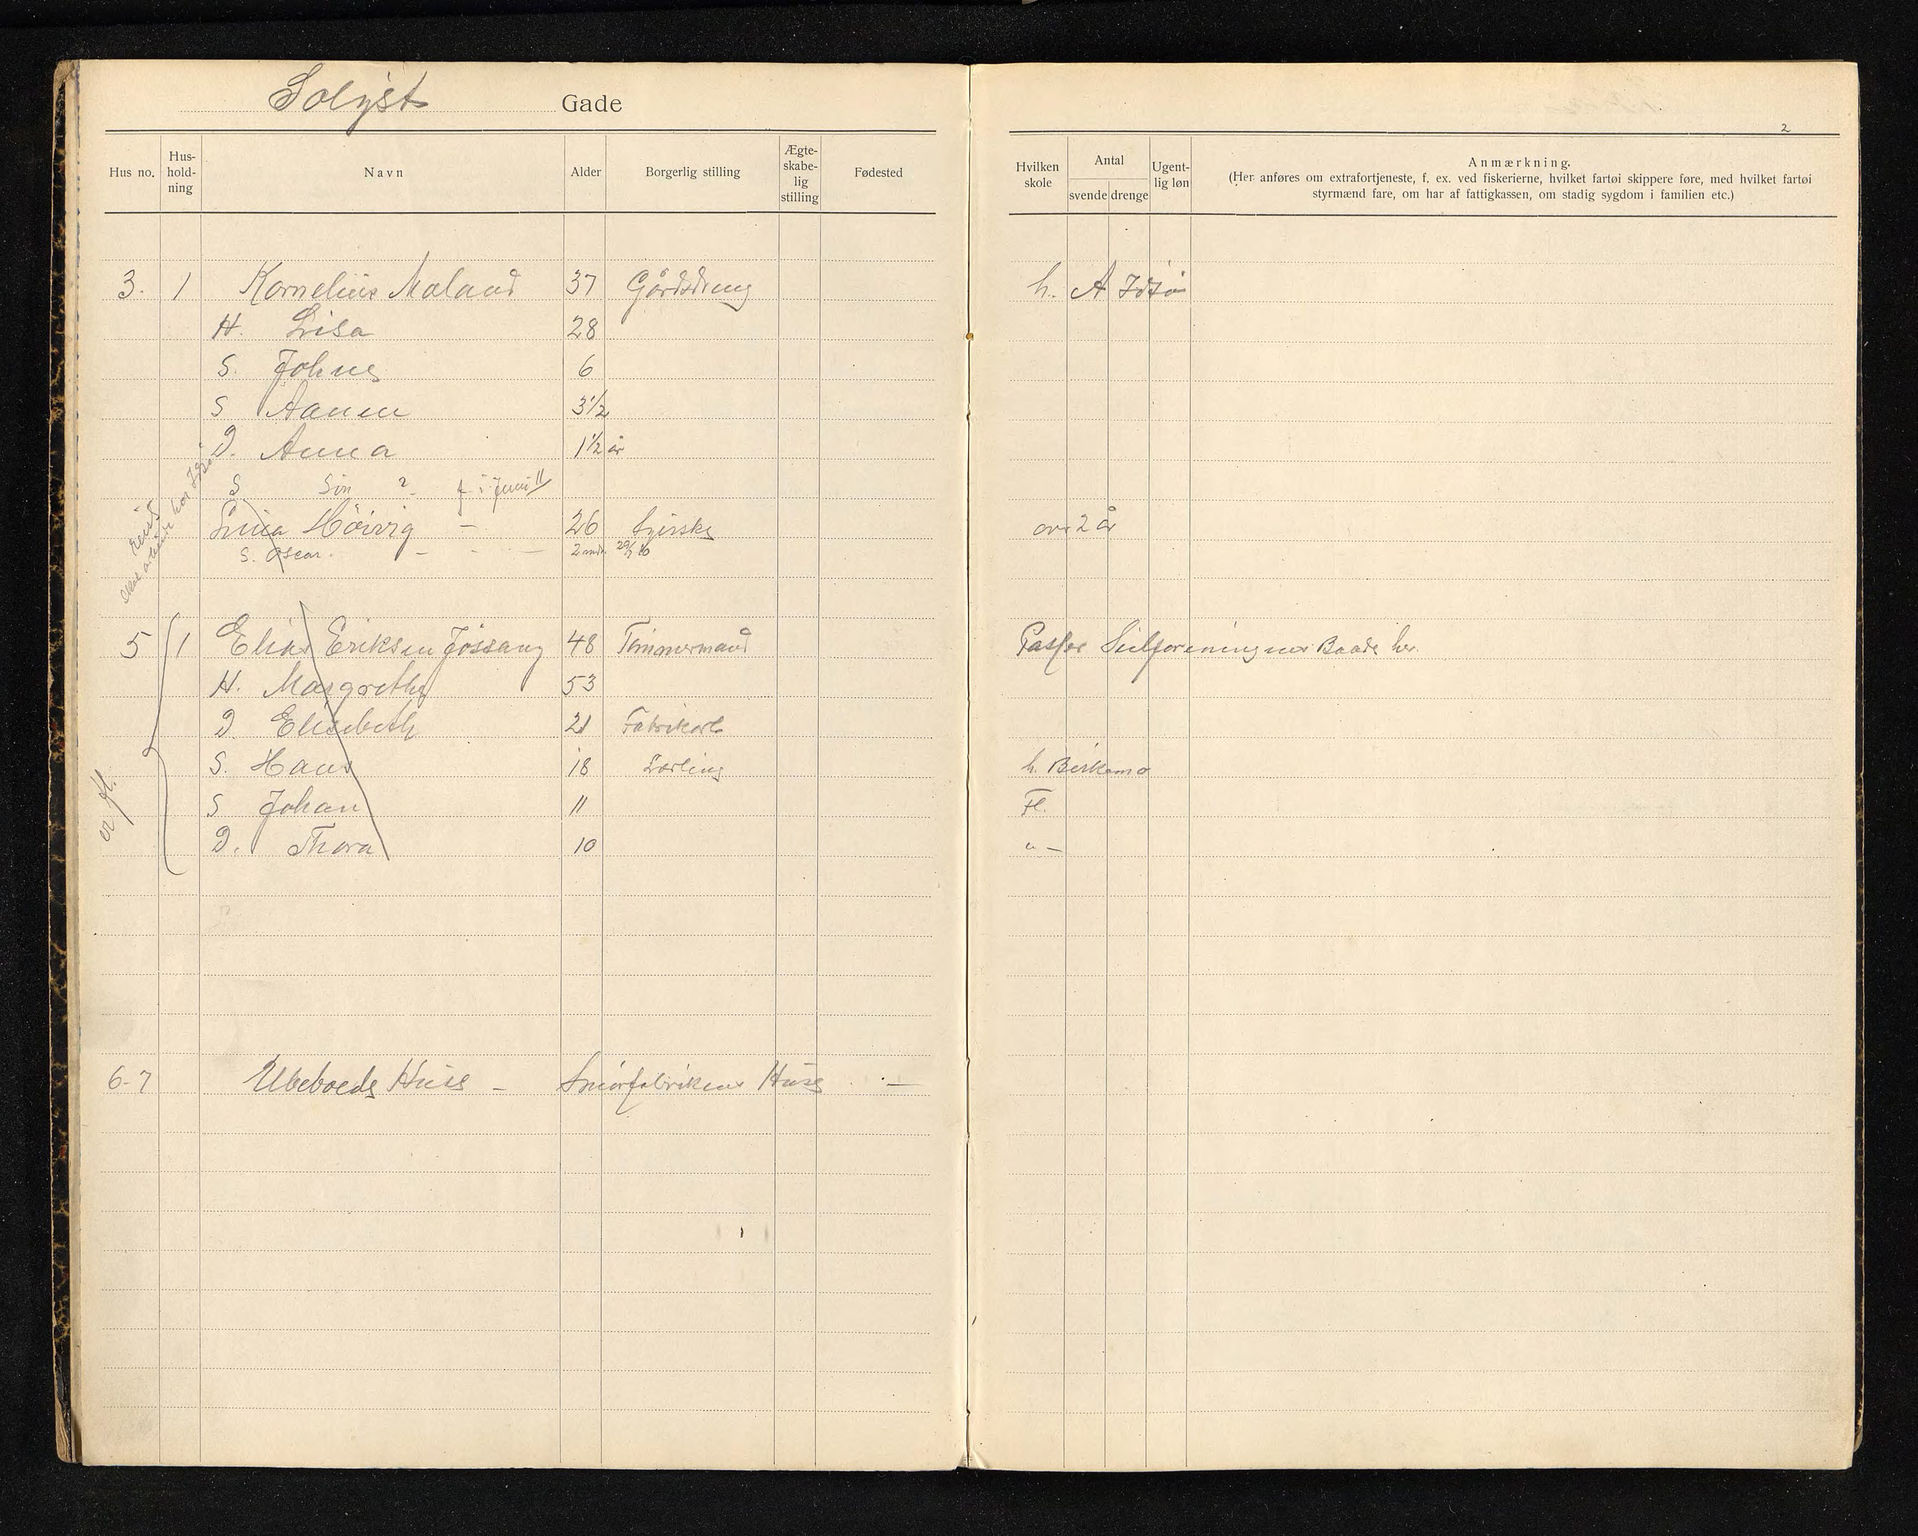 Solyst Gade
2
Hus no. Hus-hold-ning Navn Alder Borgerlig stilling Ægte-skabe-lig stilling Fødested Hvilken skole Antal svende drenge Ugent-lig løn Anmærkning.
(Her anføres om extrafortjeneste, f. ex. ved fiskerierne, hvilket fartøi skippere føre, med hvilket fartøi
styrmænd fare, om har af fattigkassen, om stadig sygdom i familien etc.)
3. 1 Kornelius Maland 37 Gårdsdreng h. A Idsøi
H. Lisa 28
S. Johnes 6
S Aanen 3 1/2
D. Anna 1 1/2 år
S Søn ? f. i Juni 11
Høivig - 26 over 2 år
S. Oscar. - - - 2
5 1 Elias Eriksen Jøssang 48 Tømmermand Baade her.
H. Margrethe 53
D Elisebeth 21 Fabrikarb
S. Hans 18 Lærling h. Birkemo
S Johan 11 Fl.
D. Thora 10 " -
er fl.
6-7 Ubeboede Huse - Smørfabrikens Huse -